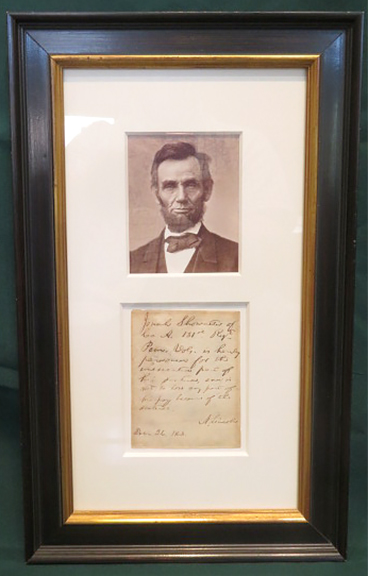 of
Co. A. 131st Reg.
Penn. Vols. is hereby
pardoned for the
unexecuted part of
his sentence, and is
not to lose any part of
his pay because of the
sentence.
A. Lincoln
186